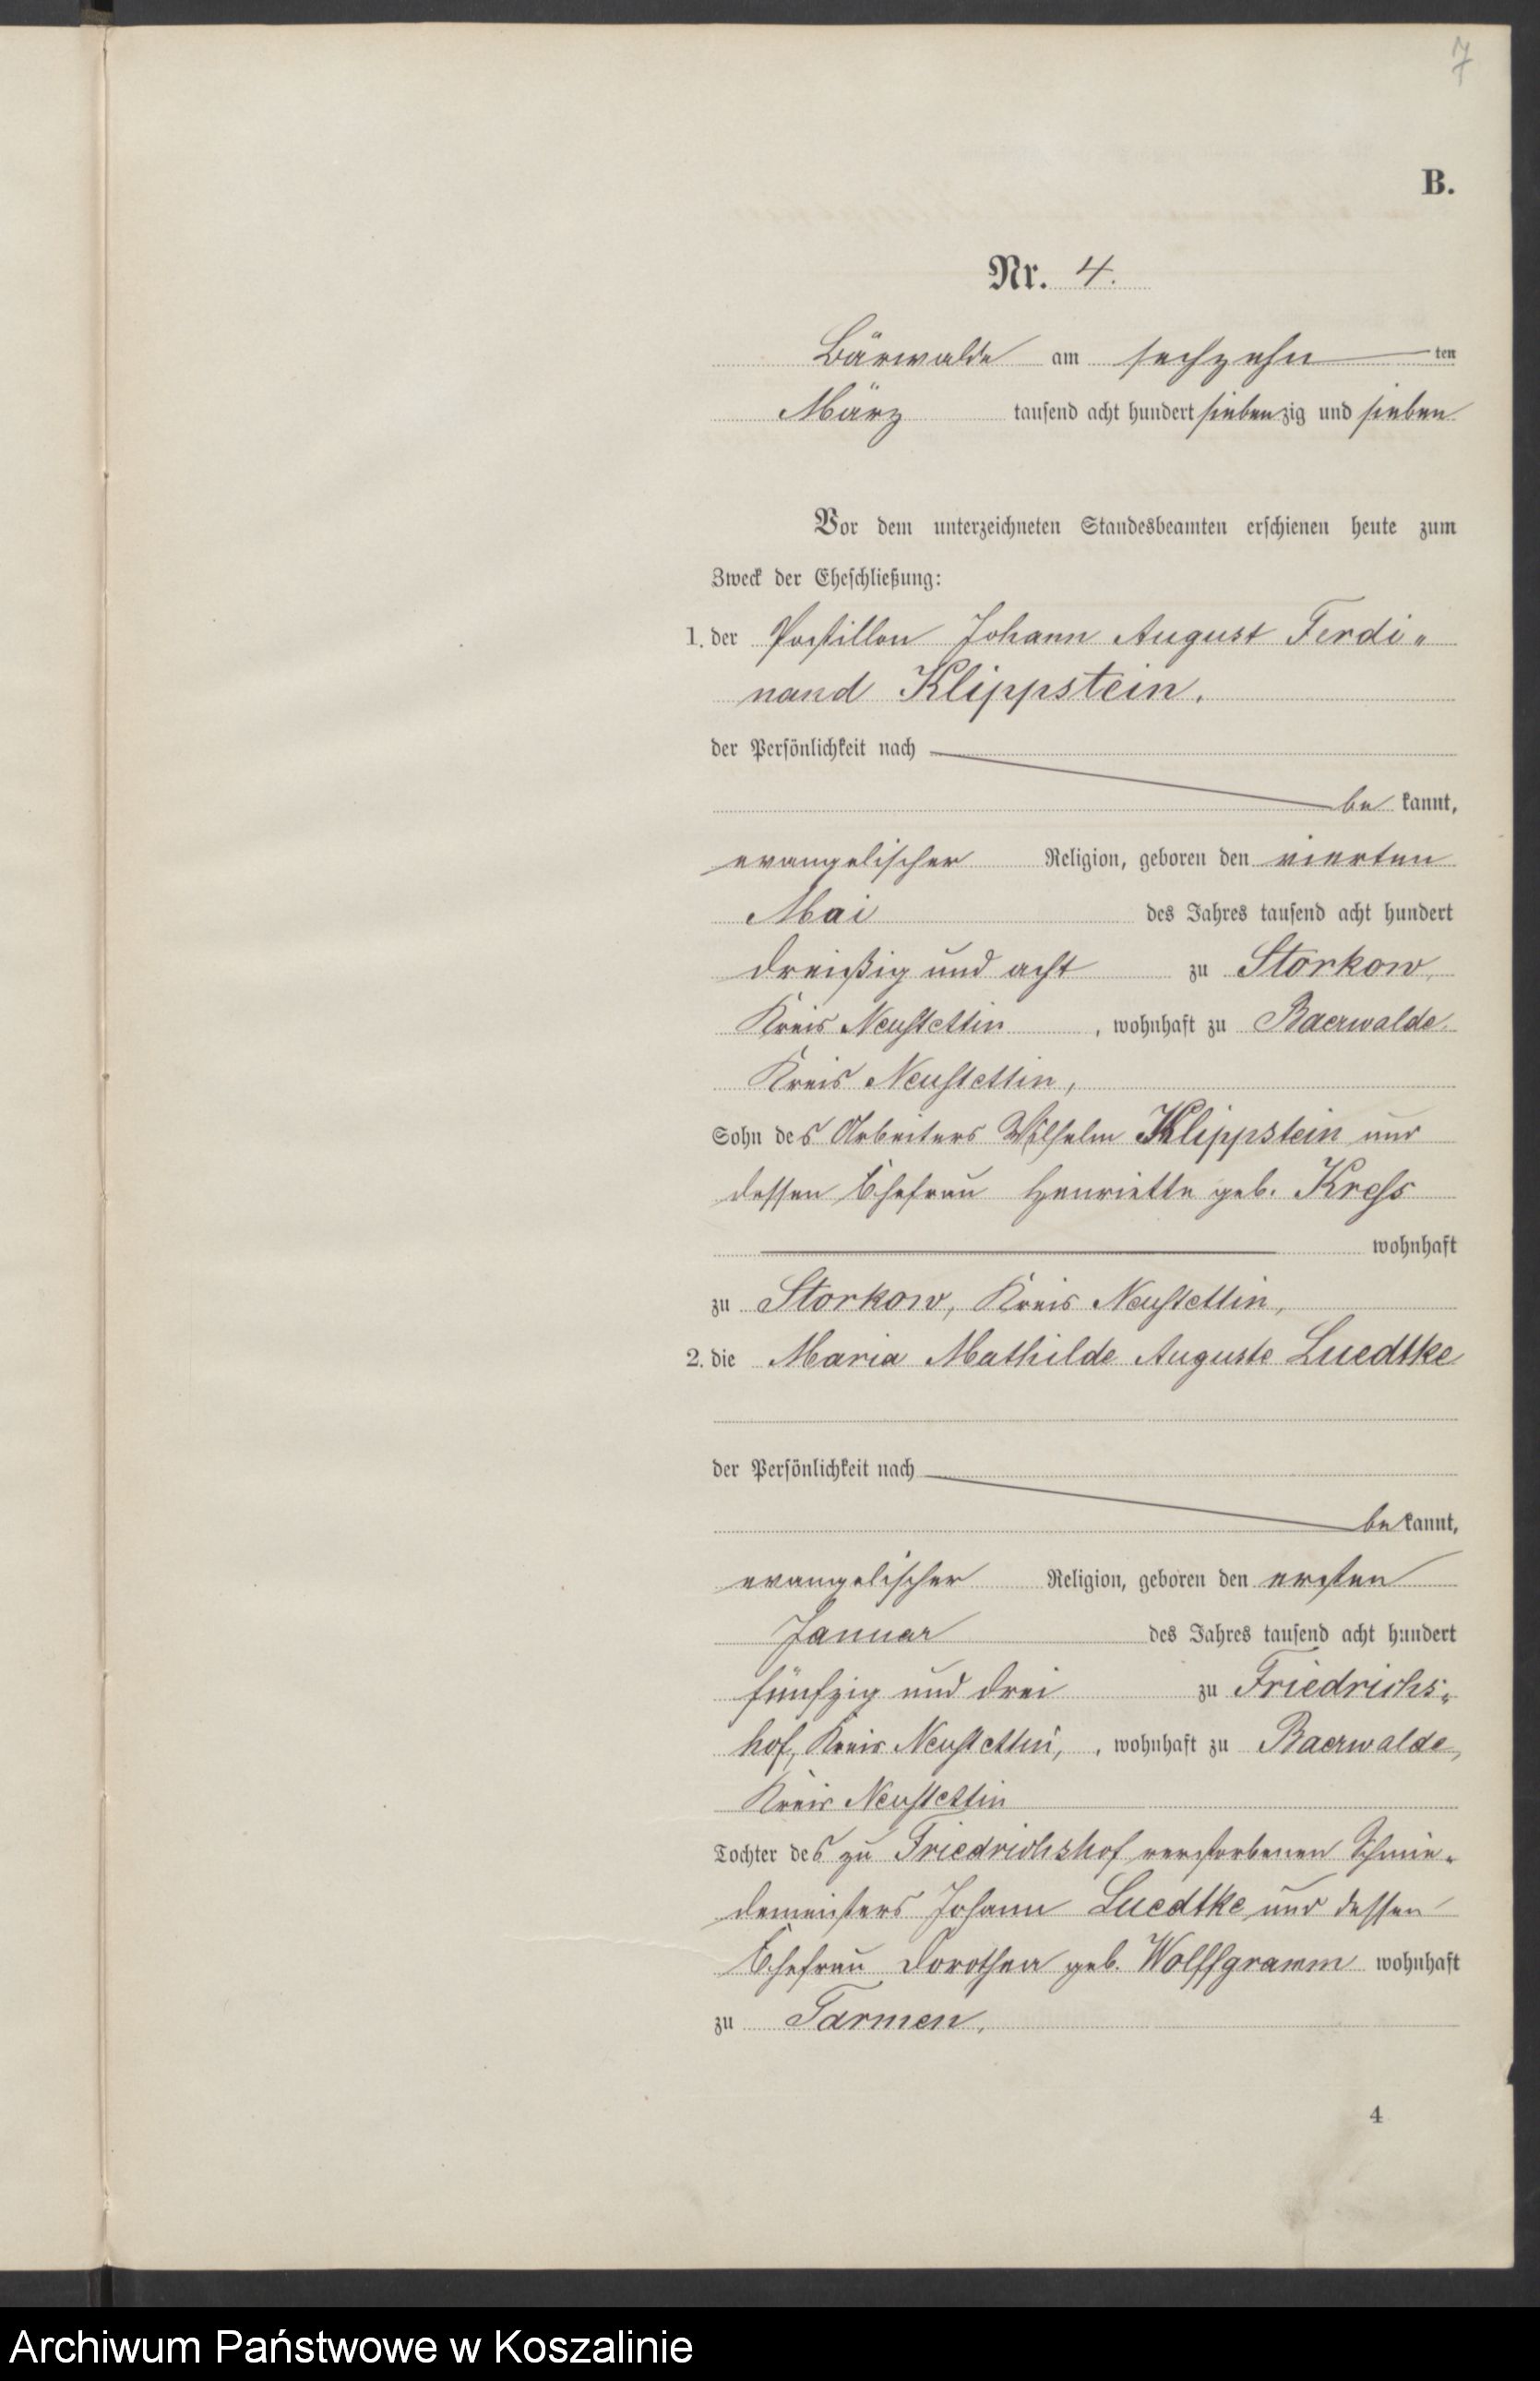 7
B.
Nr. 4.
Bärwalde am sechzehn ten
März tausend acht hundert siebenzig und sieben
Vor dem unterzeichneten Standesbeamten erschienen heute zum
Zweck der Eheschließung:
1. der Postillon Johann August Ferdi-
nand Klippstein,
der Persönlichkeit nach
be kannt,
evangelischer Religion, geboren den vierten
Mai des Jahres tausend acht hundert
dreißig und acht zu Storkow,
Kreis Neustettin, wohnhaft zu Baerwalde
Kreis Neustettin,
Sohn des Arbeiters Wilhelm Klippstein und
dessen Ehefrau Henriette geb. Kress
wohnhaft
zu Storkow, Kreis Neustettin,
2. die Maria Mathilde Auguste Luedtke
der Persönlichkeit nach
be kannt,
evangelischer Religion, geboren den ersten
Januar des Jahres tausend acht hundert
fünfzig und drei zu Friedrichs-
hof, Kreis Neustettin, , wohnhaft zu Baerwalde,
Kreis Neustettin
Tochter des zu Friedrichshof verstorbenen Schmie-
demeisters Johann Luedtke und dessen
Ehefrau Dorothea geb. Wolffgramm wohnhaft
zu Tarmen.
4
Archiwum Państwowe w Koszalinie